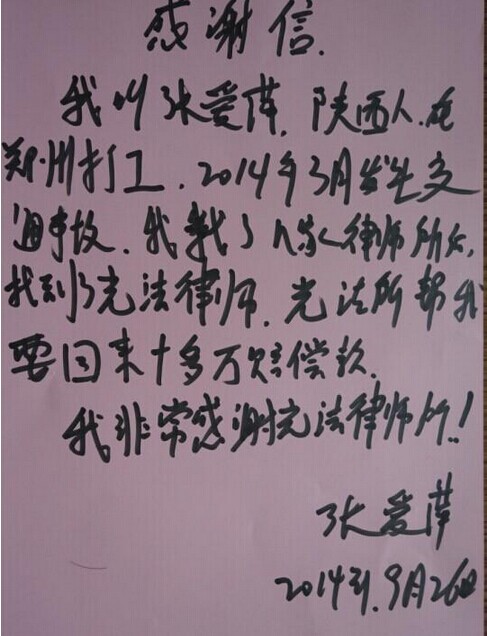 感谢信.
我叫张爱萍.陕西人.在
郑州打工.2014年3月发生交
通事故.我找了几家律师所后,
找到了克法律师.克法所帮我
要回来十多万赔偿款.
我非常感谢克法律师所.!
张爱萍
2014年.9月26日